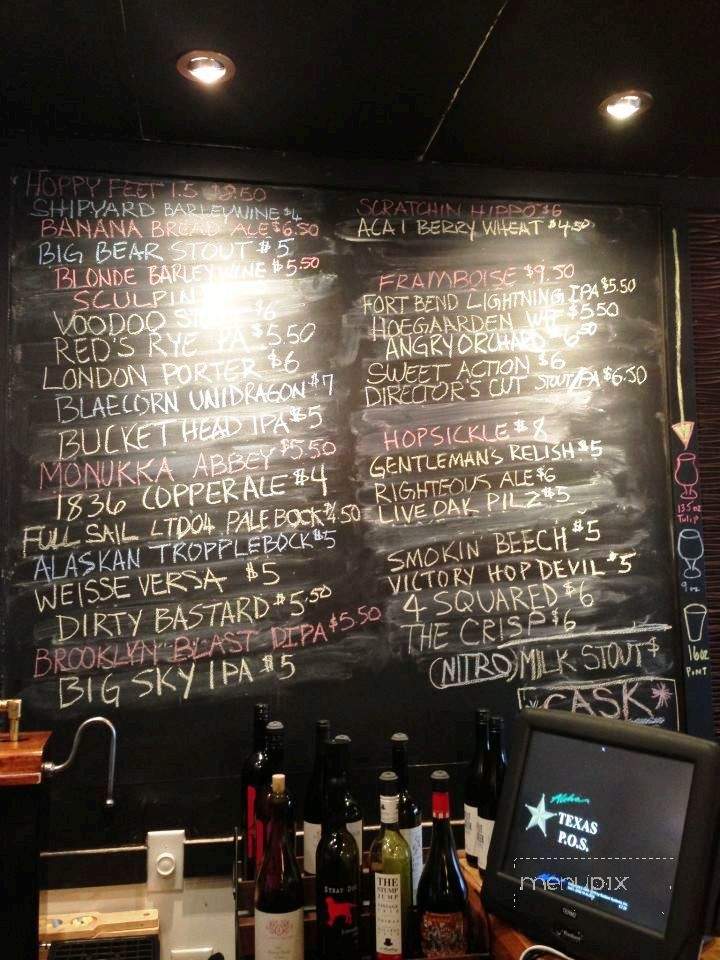 HOPPY FEET 1.5 $8.50
SHIPYARD BARLEYWINE $4
BANANA BREAD ALE $6.50
BIG BEAR STOUT $5
BLONDE BARLEYWINE $5.50
SCULPIN
VOODOO $6
RED'S RYE PA $5.50
LONDON PORTER $6
BLAECORN UNIDRAGON $7
BUCKET HEAD IPA $5
MONUKKA ABBEY $5.50
1836 COPPER ALE $4
FULL SAIL LTD04 PALE BOCK $4.50
ALASKAN TROPPLEBOCK $5
WEISSE VERSA $5
DIRTY BASTARD $5.50
BROOKLYN BLAST DIPA $5.50
BIG SKY IPA $5
SCRATCHIN HIPPO $6
ACAI BERRY WHEAT $4.50
FRAMBOISE $9.50
FORT BEND LIGHTNING IPA $5.50
HOEGAARDEN WIT $5.50
ANGRY ORCHARD $6.50
SWEET ACTION $6
DIRECTOR'S CUT STOUT/IPA $6.50
HOPSICKLE $8
GENTLEMAN'S RELISH $5
RIGHTEOUS ALE $6
LIVE OAK PILZ $5
SMOKIN' BEECH $5
VICTORY HOP DEVIL $5
4 SQUARED $6
THE CRISP $6
(NITRO) MILK STOUT $
*CASK*
13.5oz
Tulip
9oz
16oz
PINT
Aloha
TEXAS
P.O.S.
menupix
STRAY DOG
THE
STUMP
JUMP